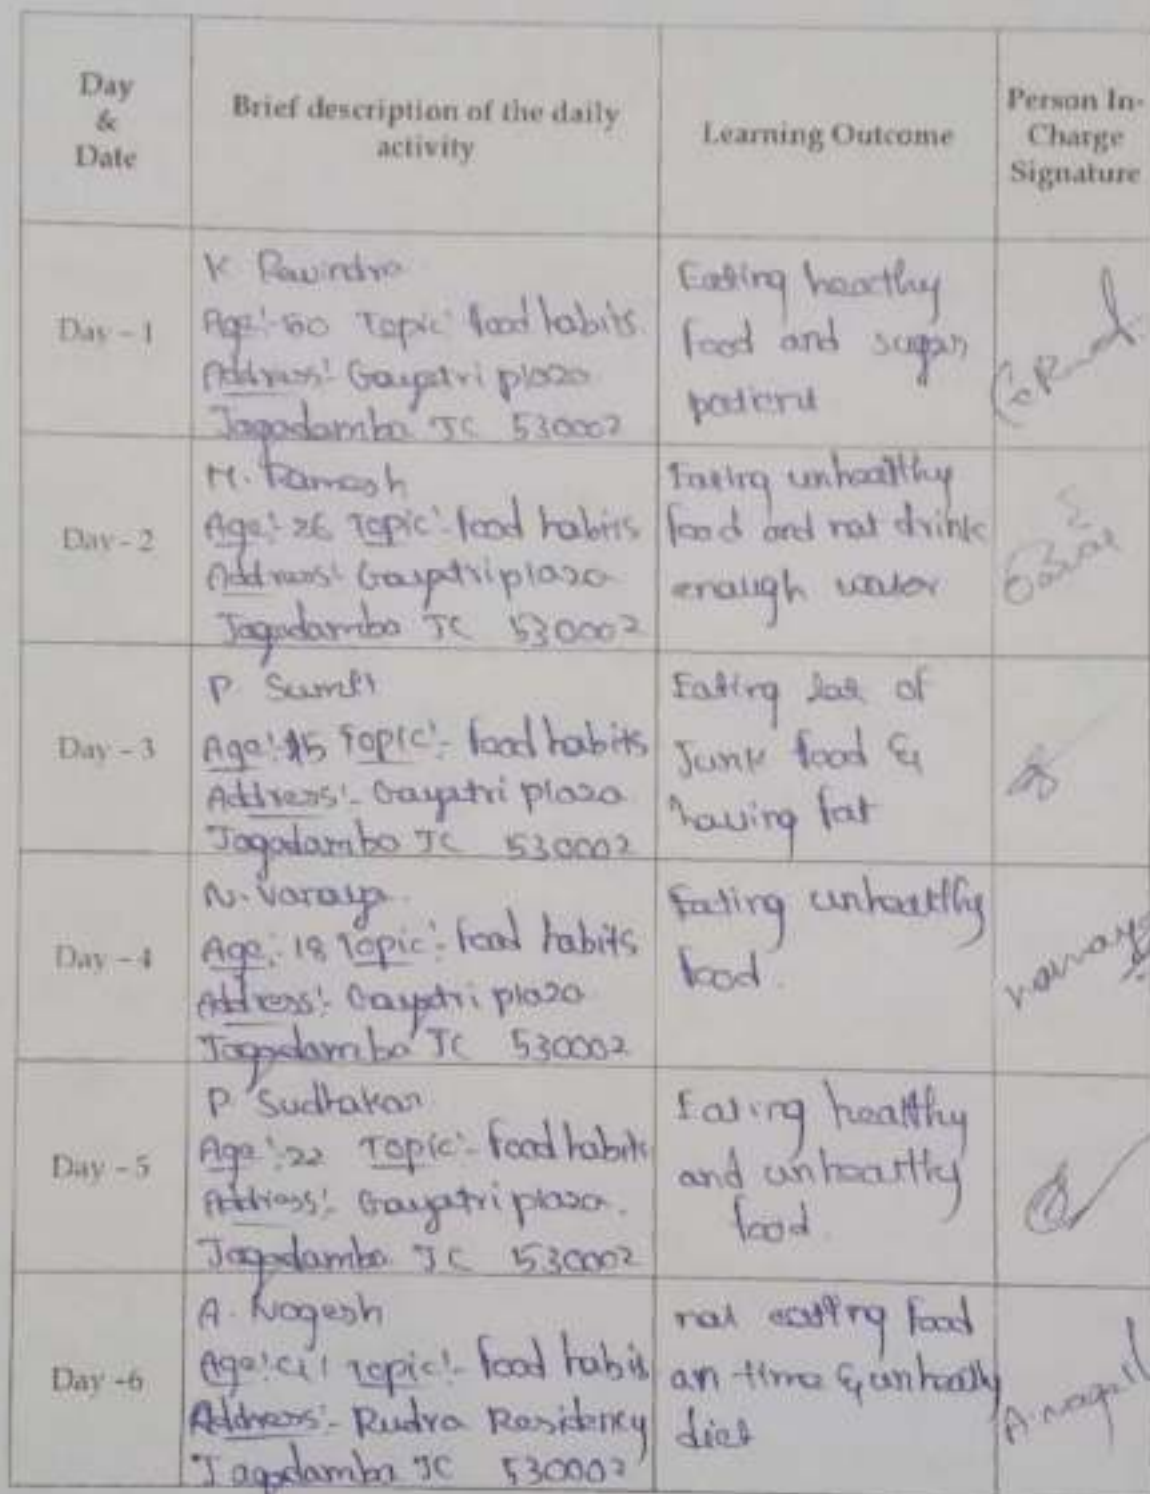 Day
&
Date
Brief description of the daily
activity
Learning Outcome
Person In-
Charge
Signature
Day - 1
K Ravindra
Age:- 50 Topic: food habits
Address:- Gayatri plaza
Jagadamba JC 530002
Eating healthy
food and sugar
patient
Day - 2
M. Ramesh
Age:- 26 Topic:- food habits
Address:- Gayatri plaza
Jagadamba JC 530002
Eating unhealthy
food and not drink
enough water
Day - 3
P.
Age:- 15 Topic:- food habits
Address:- Gayatri plaza
Jagadamba JC 530002
Eating lot of
Junk food &
having fat
Day - 4
N.
Age:- 18 Topic:- food habits
Address:- Gayatri plaza
Jagadamba JC 530002
Eating unhealthy
food.
Day - 5
P. Sudhakar
Age:- 22 Topic:- food habits
Address:- Gayatri plaza.
Jagadamba JC 530002
Eating healthy
and unhealthy
food.
Day -6
A. Nagesh
Age:- Topic:- food habit
Address:- Rudra Residency
Jagadamba JC 530002
not eating food
on time & unhealthy
diet